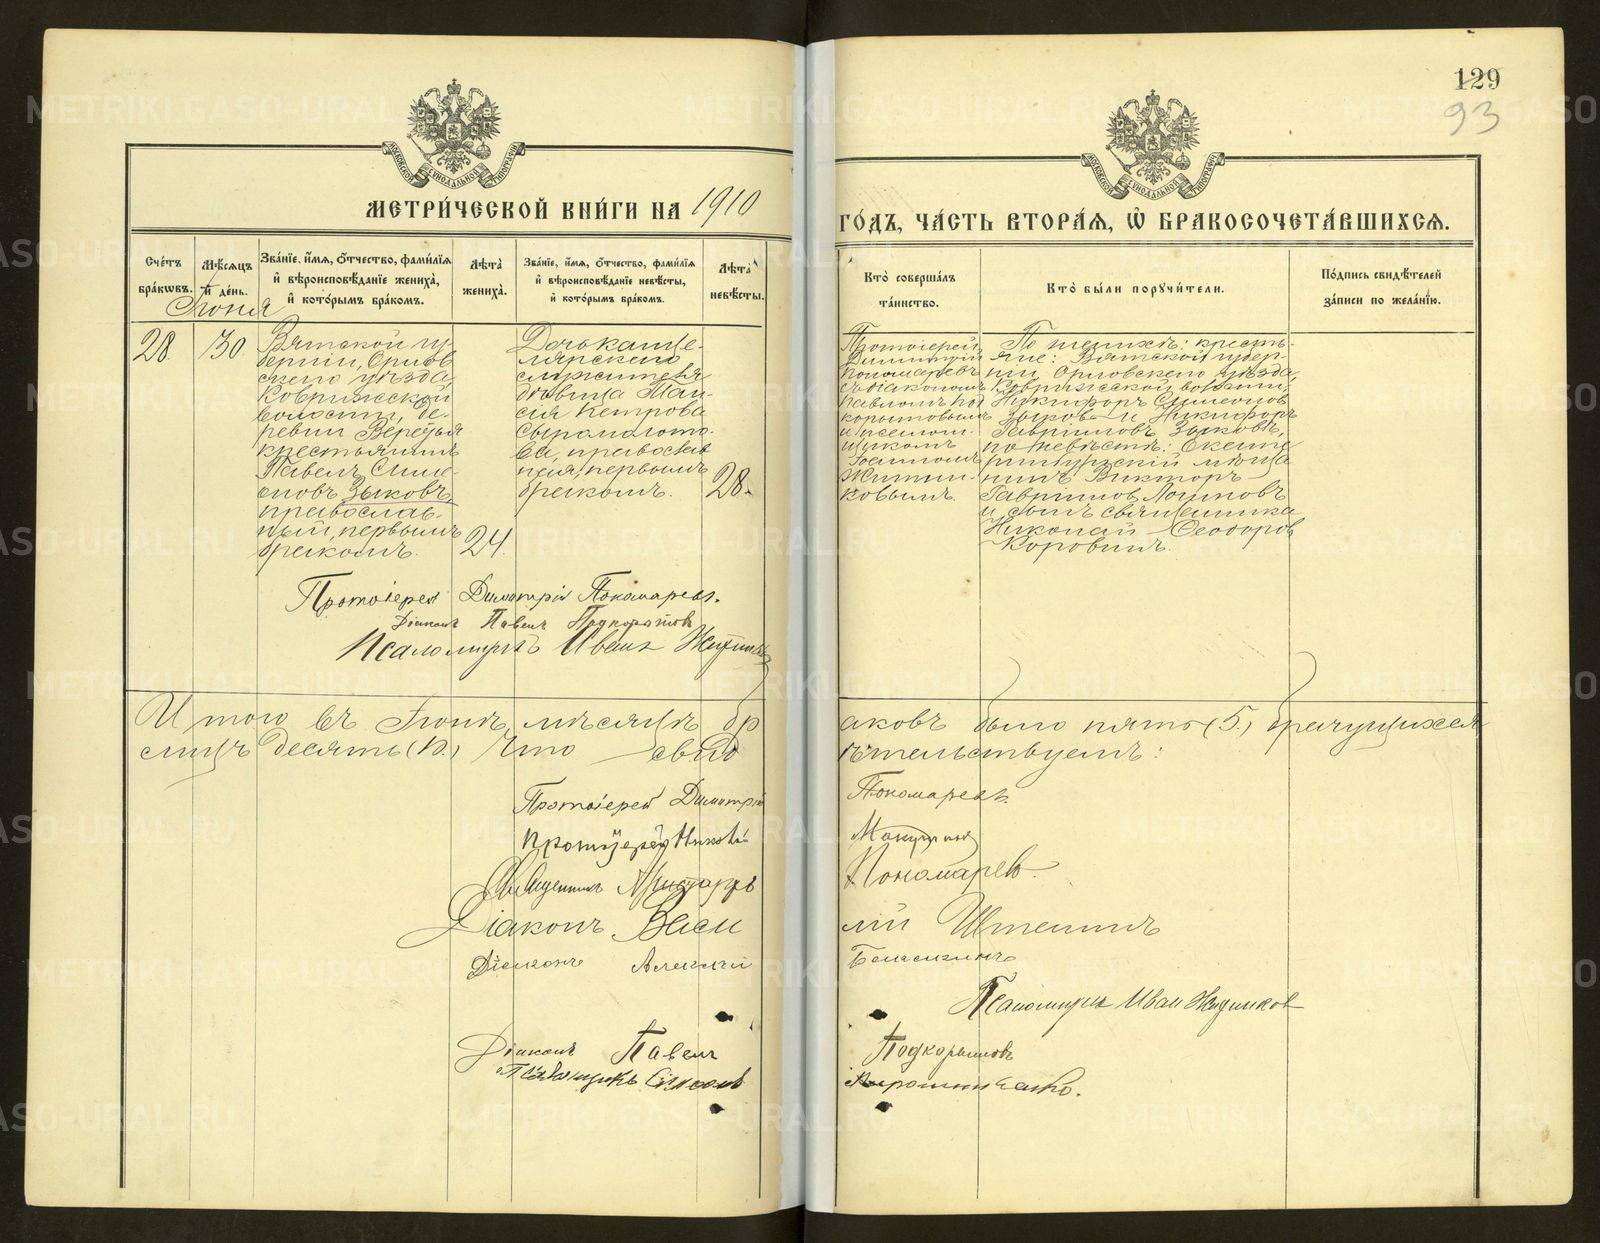 129
93
МЕТРИ́ЧЕСКОЙ КНИ́ГИ НА 1910
ГО́ДЪ, ЧА́СТЬ ВТОРА́Я, Ѡ҆ БРАКОСОЧЕТА́ВШИХСЯ.
Сче́тъ бра́кѡвъ.
Мѣ́сяцъ и҆ де́нь.
Зва́нїе, и҆́мя, ѻ҆́тчество, фами́лїя и҆ вѣроисповѣ́данїе жениха̀, и҆ кото́рымъ бра́комъ.
Лѣ́та жениха̀.
Зва́нїе, и҆́мя, ѻ҆́тчество, фами́лїя и҆ вѣроисповѣ́данїе невѣ́сты, и҆ кото́рымъ бра́комъ.
Лѣ́та невѣ́сты.
Кто̀ соверша́лъ та́инство.
Кто̀ бы́ли поручи́тели.
По́дпись свидѣ́телей за́писи по жела́нїю.
Іюня
28.
30
Вятской гу-
берніи, Орлов
скаго уѣзда,
Ковриженской
волости, де-
ревни
крестьянинъ
Павелъ Симе-
оновъ Зыковъ,
православ-
ный, первымъ
бракомъ.
24.
Дочь канце-
лярскаго
служителя
дѣвица Таи-
сия Петрова
Сыромолото-
ва, православ
ная, первымъ
бракомъ.
28.
Протоіерей
Димитрій
Пономаревъ
съ діакономъ
Павломъ Под
корытовымъ
и псалом-
щикомъ
Іоанномъ
Жидни-
ковымъ.
По женихѣ: кресть-
яне: Вятской губер-
ніи, Орловскаго уѣзда,
Ковриженской волости,
Никифоръ Симеонов
Зыковъ и Никифоръ
Гавриловъ Зыковъ,
по невѣстѣ: Екате-
ринбургскій мѣща
нинъ Викторъ
Гавріиловъ Логиновъ
и сынъ священника
Николай Ѳеодоров
Коровинъ.
Протоіерей Димитрій Пономаревъ.
Діаконъ Павелъ Подкорытов
Псаломщикъ Иванъ
Итого въ Іюнѣ мѣсяцѣ браковъ было пять (5.) брачущихся
лицъ десять (10.) что свидѣтельствуемъ:
Протоіерей Димитрій Пономаревъ.
Протоіерей
Священникъ Аристархъ Пономаревъ.
Діаконъ Василій Штейнъ
Діаконъ Алексѣй
Псаломщикъ Иван Жидников
Діаконъ Павелъ Подкорытовъ
Псаломщикъ
МОСКОВСКОЙ СѴНОДАЛЬНОЙ ТИПОГРАФІИ
МОСКОВСКОЙ СѴНОДАЛЬНОЙ ТИПОГРАФІИ
METRIKI.GASO-URAL.RU